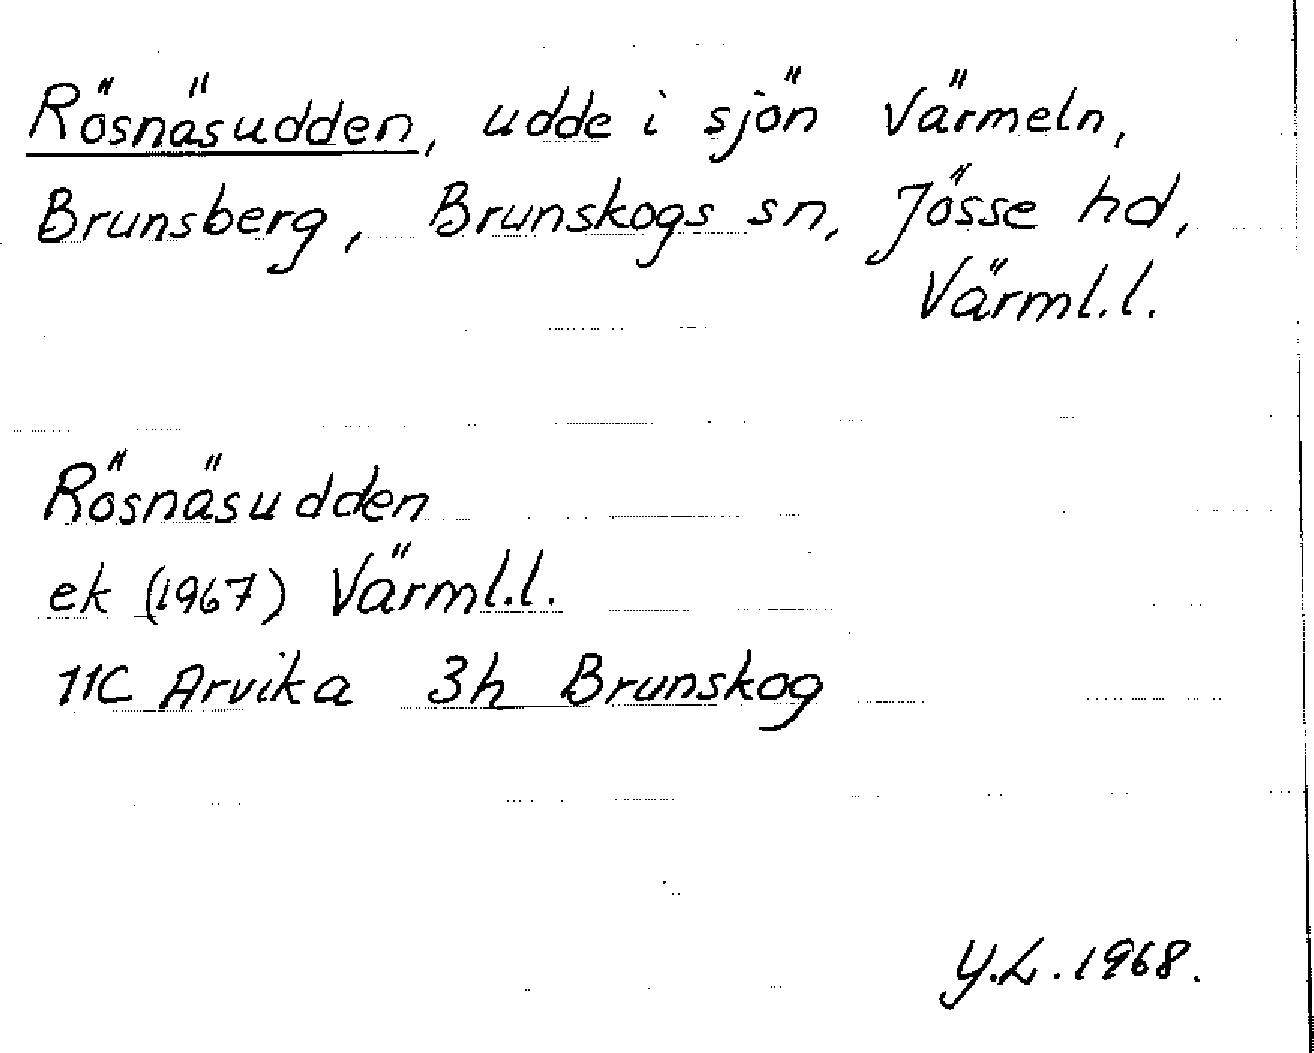 Rösnäsudden, udde i sjön Värmeln,
Brunsberg, Brunskogs sn, Jösse hd,
Värml.l.
Rösnäsudden
ek (1967) Värml.l.
11C Arvika 3h Brunskog
Y.L. 1968.